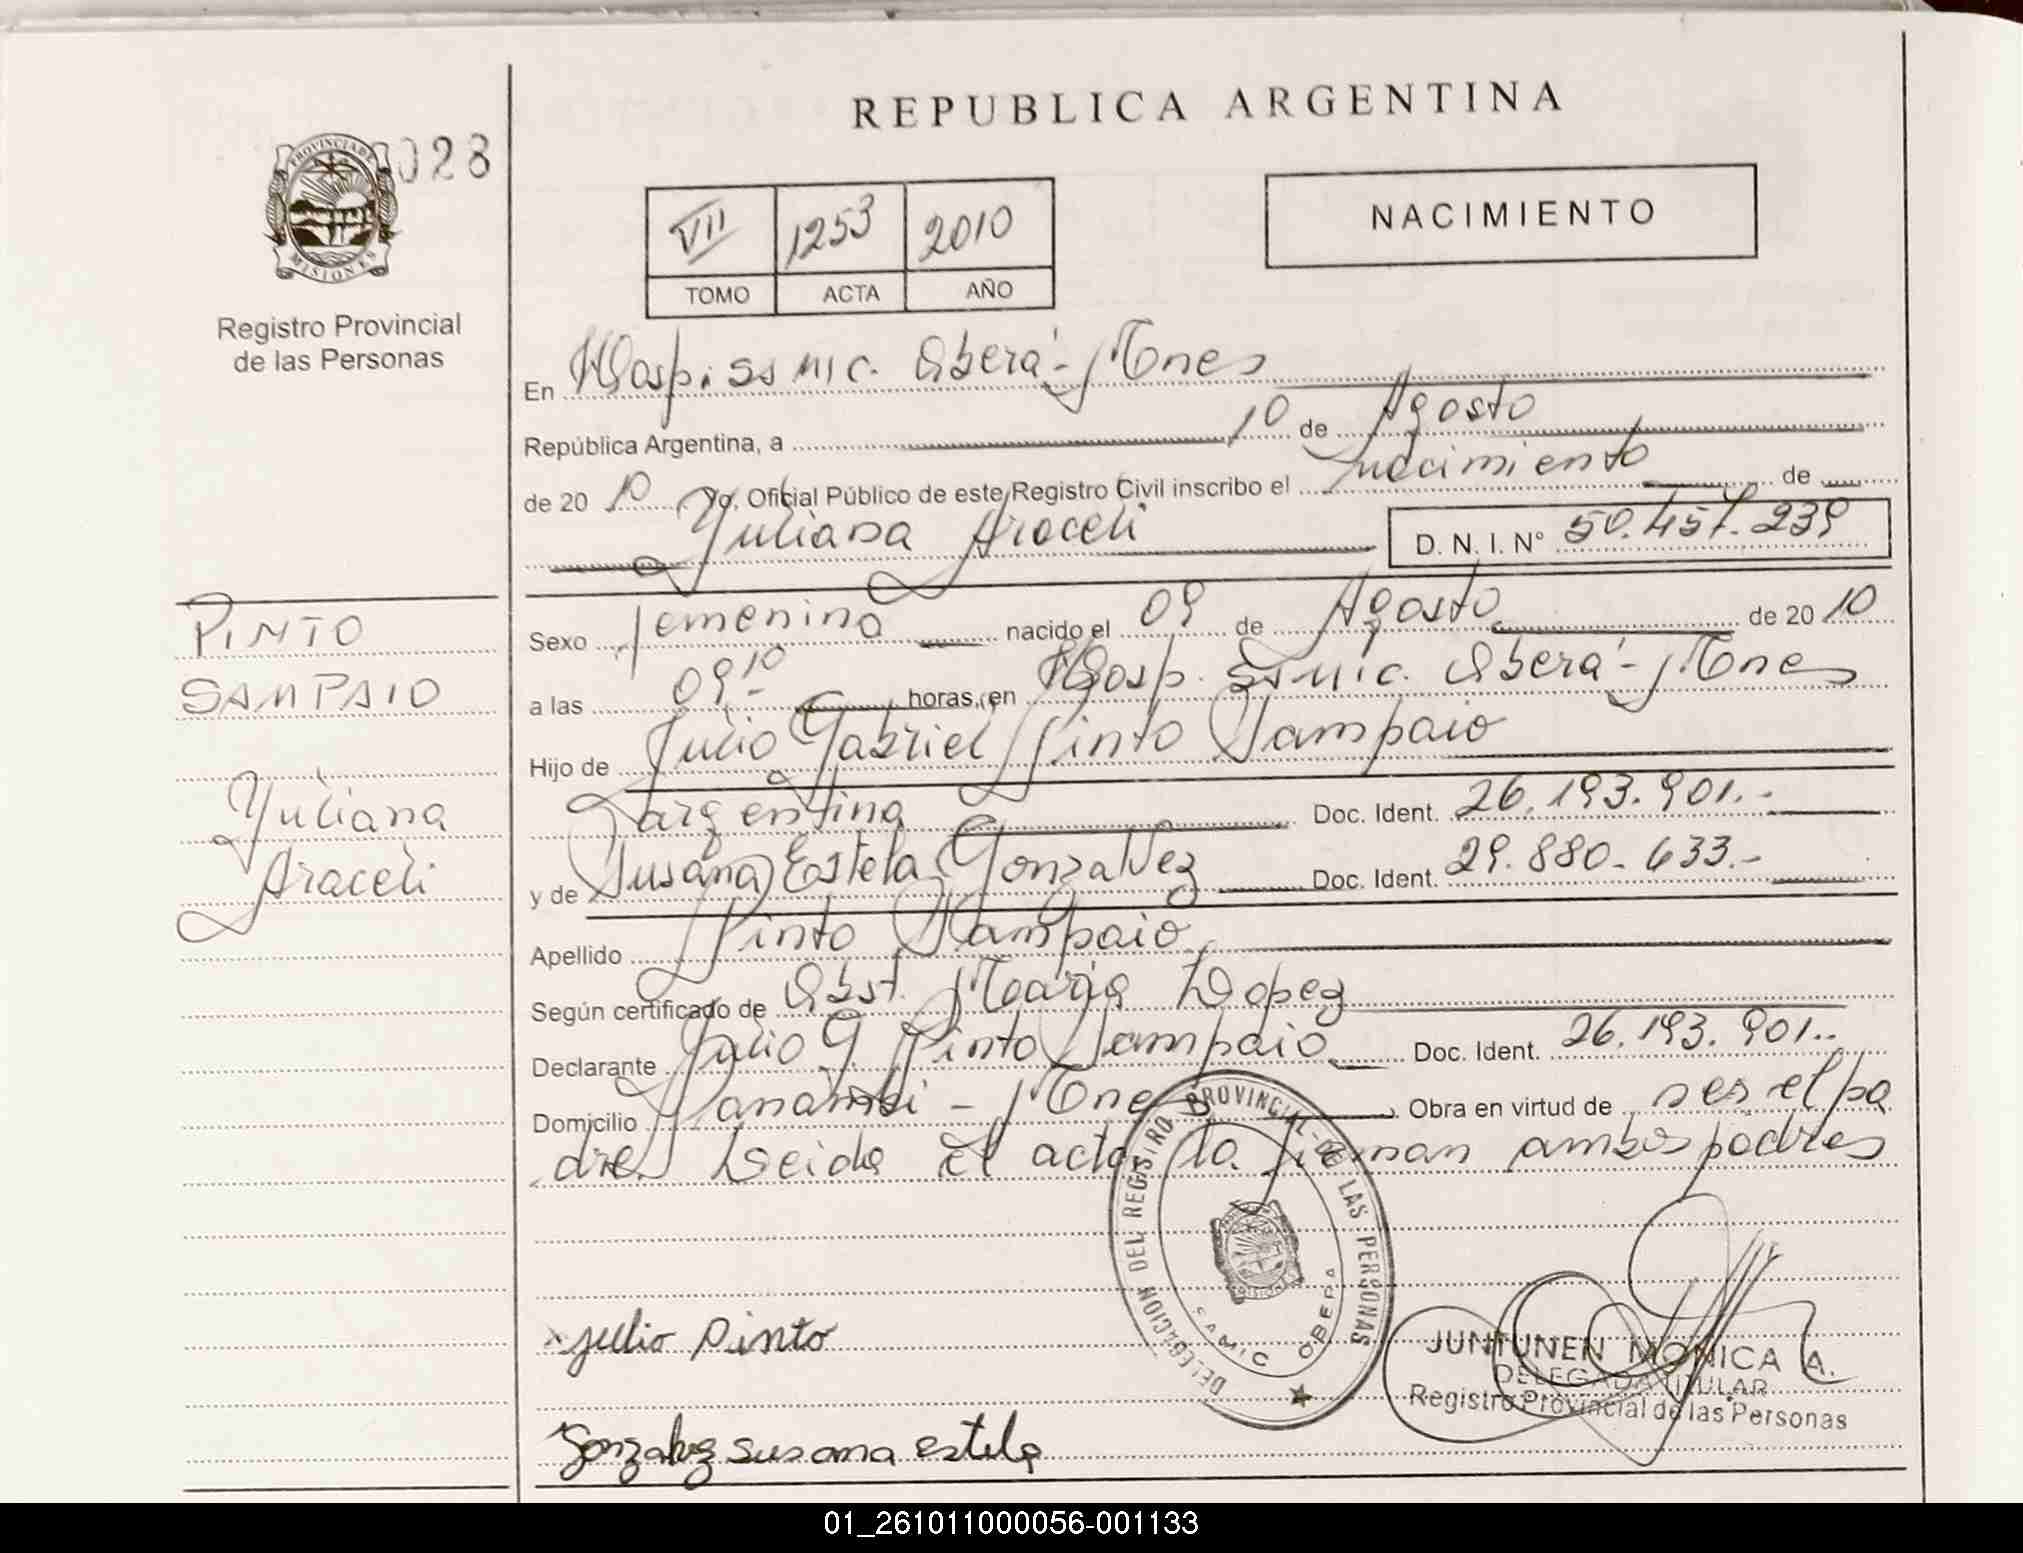 REPUBLICA ARGENTINA
028
PROVINCIA DE
MISIONES
Registro Provincial
de las Personas
VII 1253 2010
TOMO ACTA AÑO
NACIMIENTO
En Hosp. SSMIC. Oberá - Mnes
República Argentina, a 10 de Agosto
de 20 10 Yo, Oficial Público de este Registro Civil inscribo el nacimiento de
Yuliana Araceli D. N. I. Nº 50.457.239
PINTO
SAMPAIO
Yuliana
Araceli
Sexo femenino nacido el 09 de Agosto de 20 10
a las 09 10 horas, en Hosp. SSMIC. Oberá - Mnes
Hijo de Julio Gabriel Pinto Sampaio
argentina Doc. Ident. 26.193.901.-
y de Susana Estela Gonzalvez Doc. Ident. 29.880.633.-
Apellido Pinto Sampaio
Según certificado de Obst. María Lopez
Declarante Julio G. Pinto Sampaio Doc. Ident. 26.193.901..
Domicilio Panambi - Mnes Obra en virtud de ser el pa
dre. Leida el acta la firman ambos padres
DELEGACION DEL REGISTRO PROVINCIAL DE LAS PERSONAS
OBERA
julio pinto
JUNTUNEN MONICA A.
DELEGADA TITULAR
Registro Provincial de las Personas
Gonzalvez susana estela
01_261011000056-001133